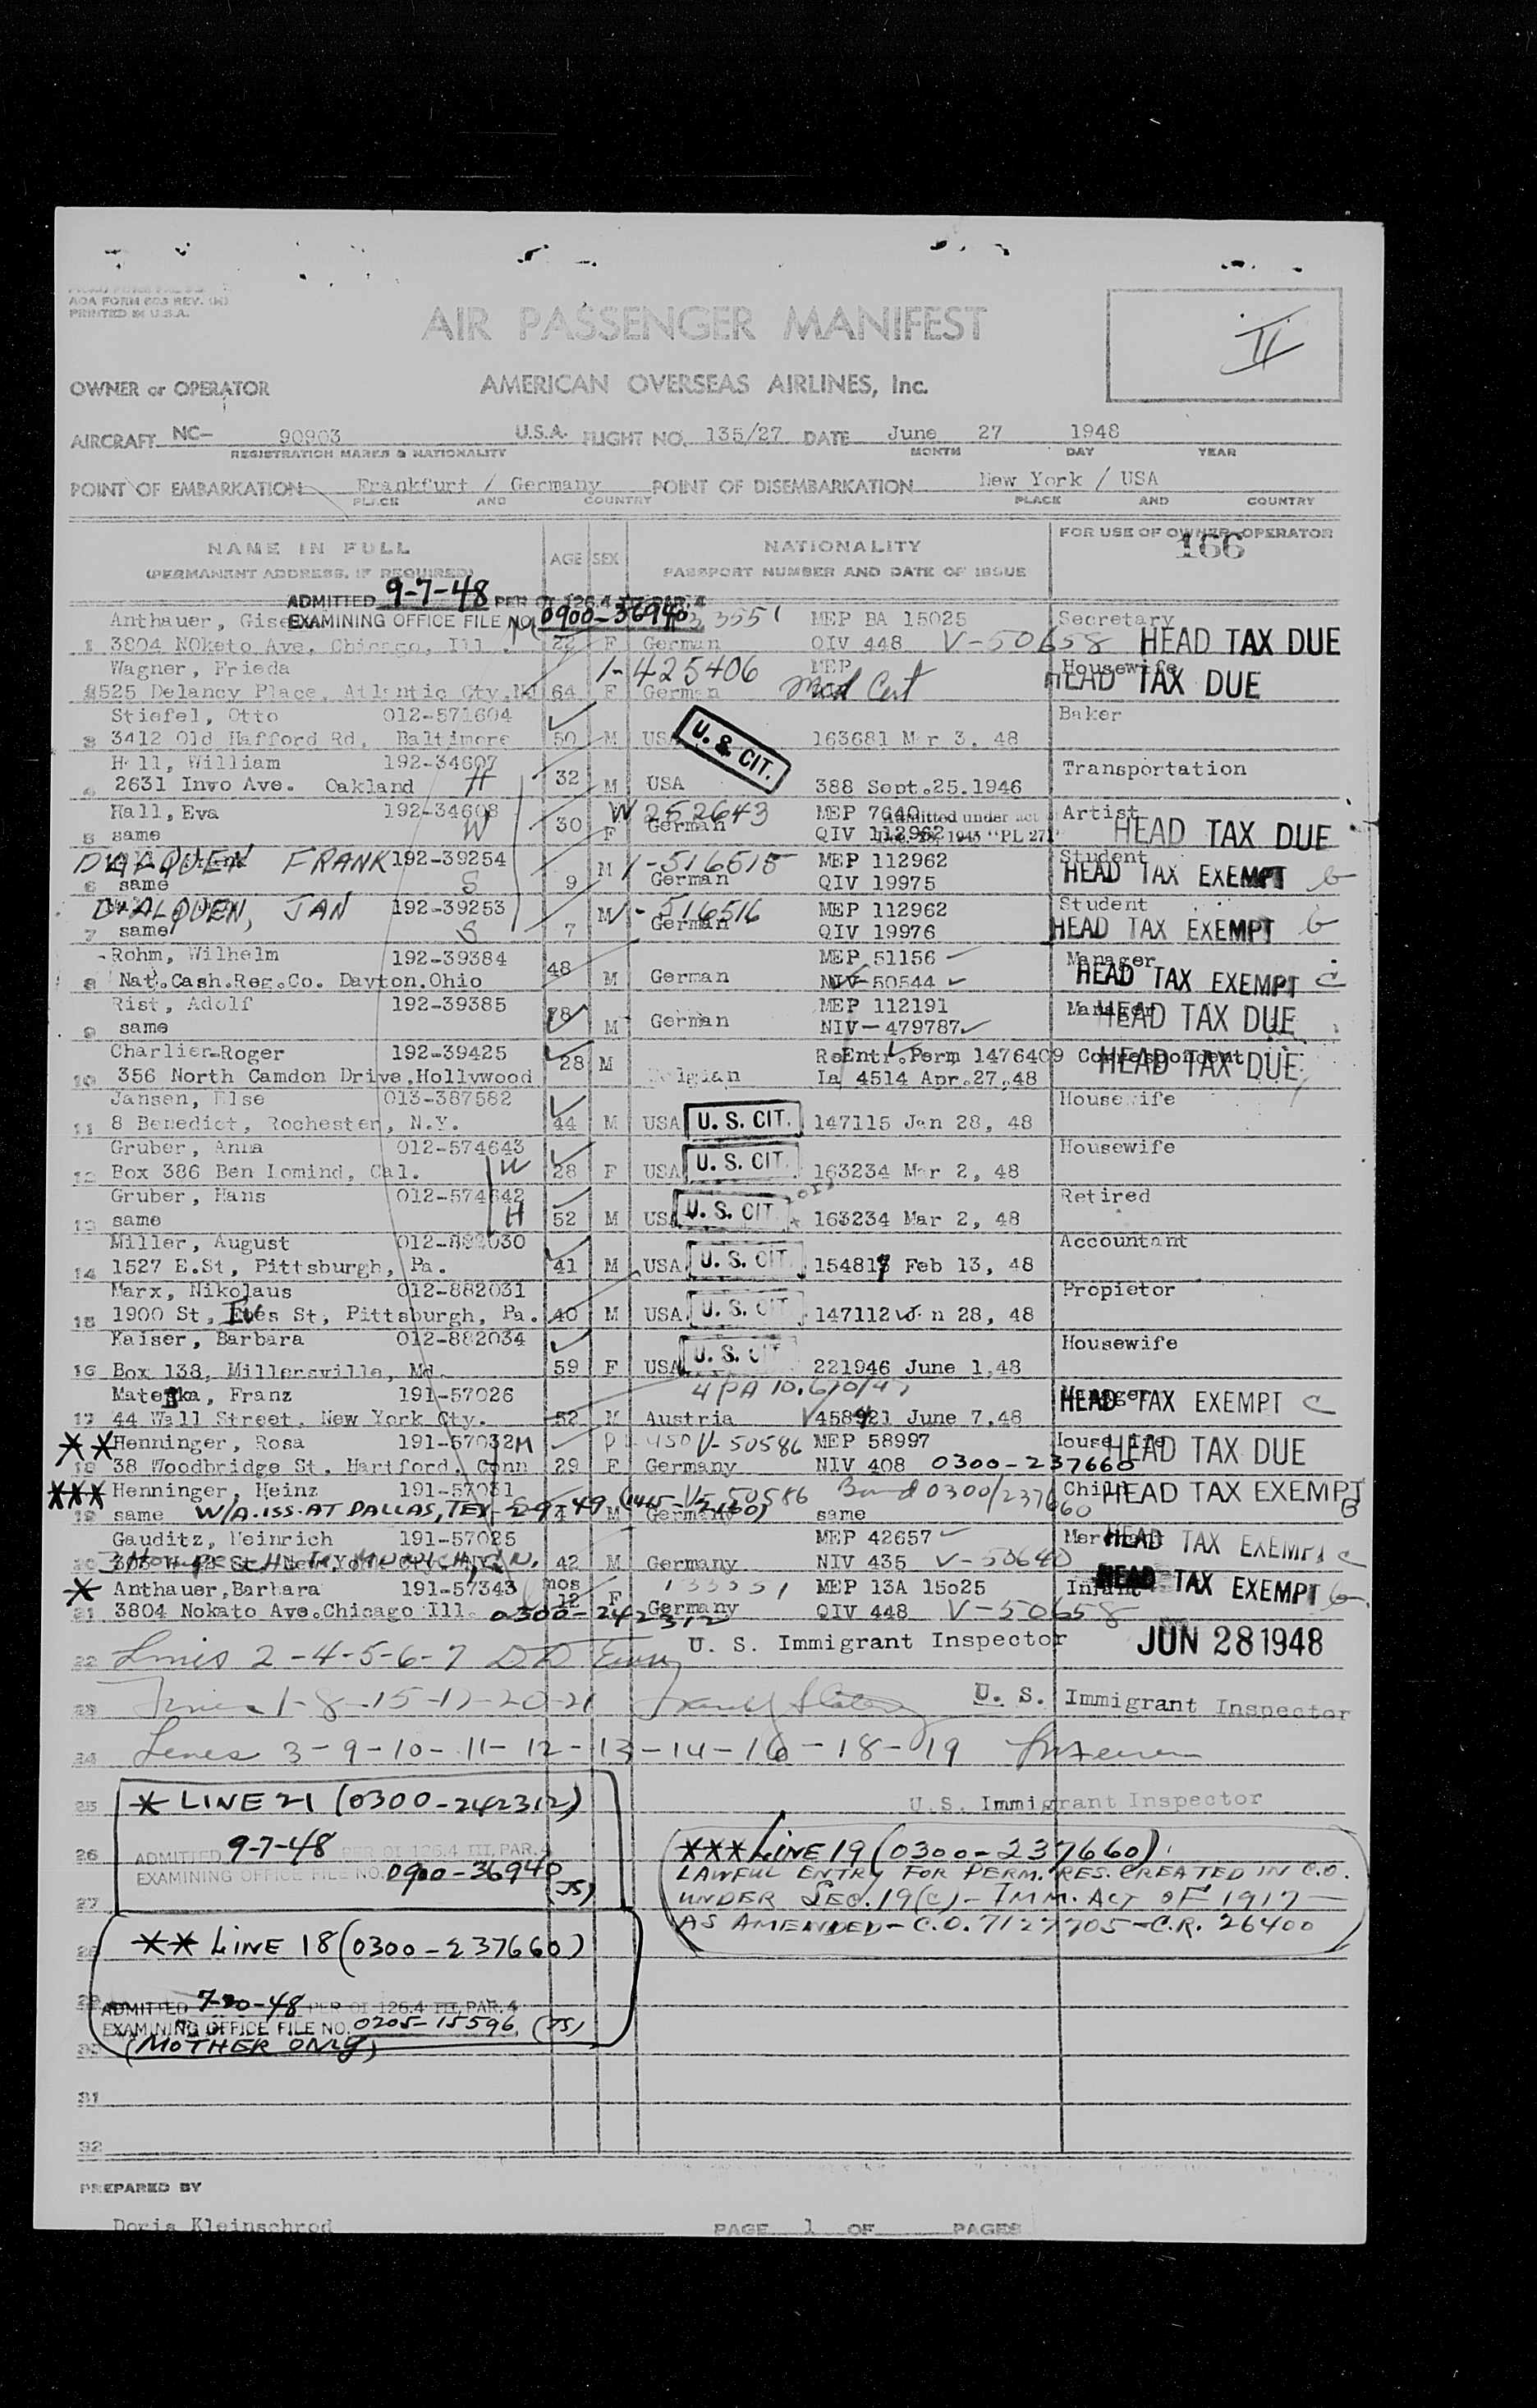 AOA FORM 603 REV. (H)
PRINTED IN U.S.A.
AIR PASSENGER MANIFEST
II
OWNER or OPERATOR
AMERICAN OVERSEAS AIRLINES, Inc.
AIRCRAFT NC- 90903 U.S.A. FLIGHT NO. 135/27 DATE June 27 1948
REGISTRATION MARKS & NATIONALITY MONTH DAY YEAR
POINT OF EMBARKATION Frankfurt / Germany POINT OF DISEMBARKATION New York / USA
PLACE AND COUNTRY PLACE AND COUNTRY
NAME IN FULL AGE SEX NATIONALITY FOR USE OF OWNER-OPERATOR
(PERMANENT ADDRESS, IF REQUIRED) PASSPORT NUMBER AND DATE OF ISSUE 166
ADMITTED 9-7-48 PER OI 126.4 III, PAR. 4
EXAMINING OFFICE FILE NO. 0900-36940
Anthauer, MEP BA 15025 Secretary
1 3804 NOketo Ave, Chicago, Ill. 22 F German QIV 448 V-50658 HEAD TAX DUE
Wagner, Frieda 1-425406 MEP Housewife
2525 Delancy Place, Atlantic Cty, NJ 64 F German Med Cert HEAD TAX DUE
Stiefel, Otto 012-571604 Baker
3 3412 Old Hafford Rd, Baltimore 50 M USA U. S. CIT. 163681 Mar 3, 48
Hall, William 192-34607 Transportation
4 2631 Invo Ave. Oakland H 32 M USA 388 Sept.25.1946
Hall, Eva 192-34608 W 252643 MEP 7640 Artist
5 same W 30 F German QIV 112962 HEAD TAX DUE
D'ALQUEN FRANK 192-39254 1-516515 MEP 112962 Student
6 same S 9 M German QIV 19975 HEAD TAX EXEMPT G
D'ALQUEN, JAN 192-39253 1-516516 MEP 112962 Student
7 same S 7 M German QIV 19976 HEAD TAX EXEMPT G
Rohm, Wilhelm 192-39384 MEP 51156 Manager
8 Nat.Cash.Reg.Co. Dayton.Ohio 48 M German NIV 50544 HEAD TAX EXEMPT C
Rist, Adolf 192-39385 MEP 112191 Manager
9 same M German NIV-479787 HEAD TAX DUE
Charlier-Roger 192-39425 ReEntr.Perm 1476409 Correspondent
10 356 North Camdon Drive,Hollywood 28 M Belgian Ia 4514 Apr.27,48 HEAD TAX DUE
Jansen, Else 013-387582 Housewife
11 8 Benedict, Rochester, N.Y. 44 M USA U. S. CIT. 147115 Jan 28, 48
Gruber, Anna 012-574643 Housewife
12 Box 386 Ben Lomind, Cal. W 28 F USA U. S. CIT. 163234 Mar 2, 48
Gruber, Hans 012-574642 Retired
13 same H 52 M USA U. S. CIT 163234 Mar 2, 48
Miller, August 012-882030 Accountant
14 1527 E.St, Pittsburgh, Pa. 41 M USA U. S. CIT. 154817 Feb 13, 48
Marx, Nikolaus 012-882031 Propietor
15 1900 St, Ives St, Pittsburgh, Pa. 40 M USA U. S. CIT. 147112 Jan 28, 48
Kaiser, Barbara 012-882034 Housewife
16 Box 138, Millersville, Md. 59 F USA U. S. CIT 221946 June 1,48
Franz 191-57026 Manager
17 44 Wall Street, New York Cty. 52 M Austria June 7,48 HEAD TAX EXEMPT C
** Henninger, Rosa 191-57032 M V-50586 MEP 58997 Housewife
18 38 Woodbridge St. Hartford. Conn 29 F Germany NIV 408 0300-237660 HEAD TAX DUE
*** Henninger, Heinz 191-57031 V-50586 Bond 0300/237660 Child HEAD TAX EXEMPT
19 same W/A.ISS.AT DALLAS, TEX 2-9-49 4 M Germany same B
Gauditz, Heinrich 191-57025 MEP 42657 Merchant HEAD TAX EXEMPT C
20 42 M Germany NIV 435 V-53640
* Anthauer,Barbara 191-57343 mos MEP 13A 15025 Infant HEAD TAX EXEMPT G
21 3804 Nokato Ave.Chicago Ill. 0300-242312 12 F Germany QIV 448 V-50658
U. S. Immigrant Inspector JUN 28 1948
22 Lines 2-4-5-6-7
23 Lines 1-8-15-17-20-21 U. S. Immigrant Inspector
24 Lines 3-9-10-11-12-13-14-16-18-19
25 * LINE 21 (0300-242312) U.S. Immigrant Inspector
26 ADMITTED 9-7-48 PER OI 126.4 III, PAR. 4
EXAMINING OFFICE FILE NO. 0900-36940 (JS)
*** LINE 19 (0300-237660)
LAWFUL ENTRY FOR PERM. RES. CREATED IN C.O.
27 UNDER SEC. 19(C) - IMM. ACT OF 1917 -
AS AMENDED - C.O. 7127705 - C.R. 26400
28 ** LINE 18 (0300-237660)
29 ADMITTED 7-20-48 PER OI 126.4 III, PAR. 4
EXAMINING OFFICE FILE NO. 0205-15596 (JS)
30 (MOTHER ONLY)
31
32
PREPARED BY
Doris Kleinschrod PAGE 1 OF PAGES